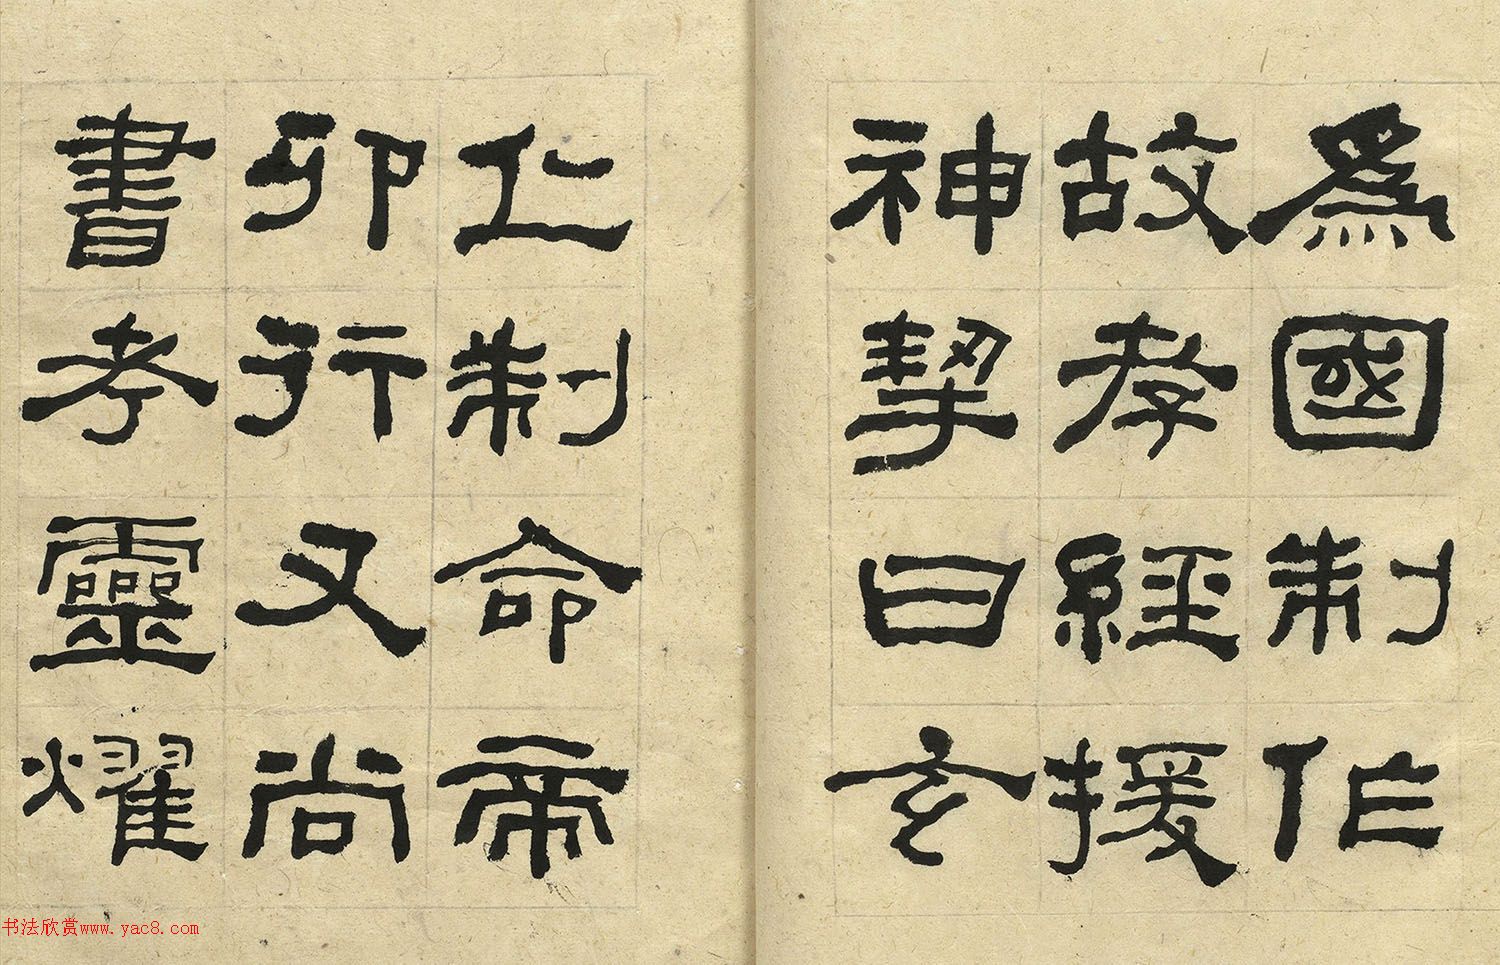 為國制作
故孝經援
神挈曰玄
仁制命帝
卯行又尚
書考靈燿
书法欣赏www.yac8.com